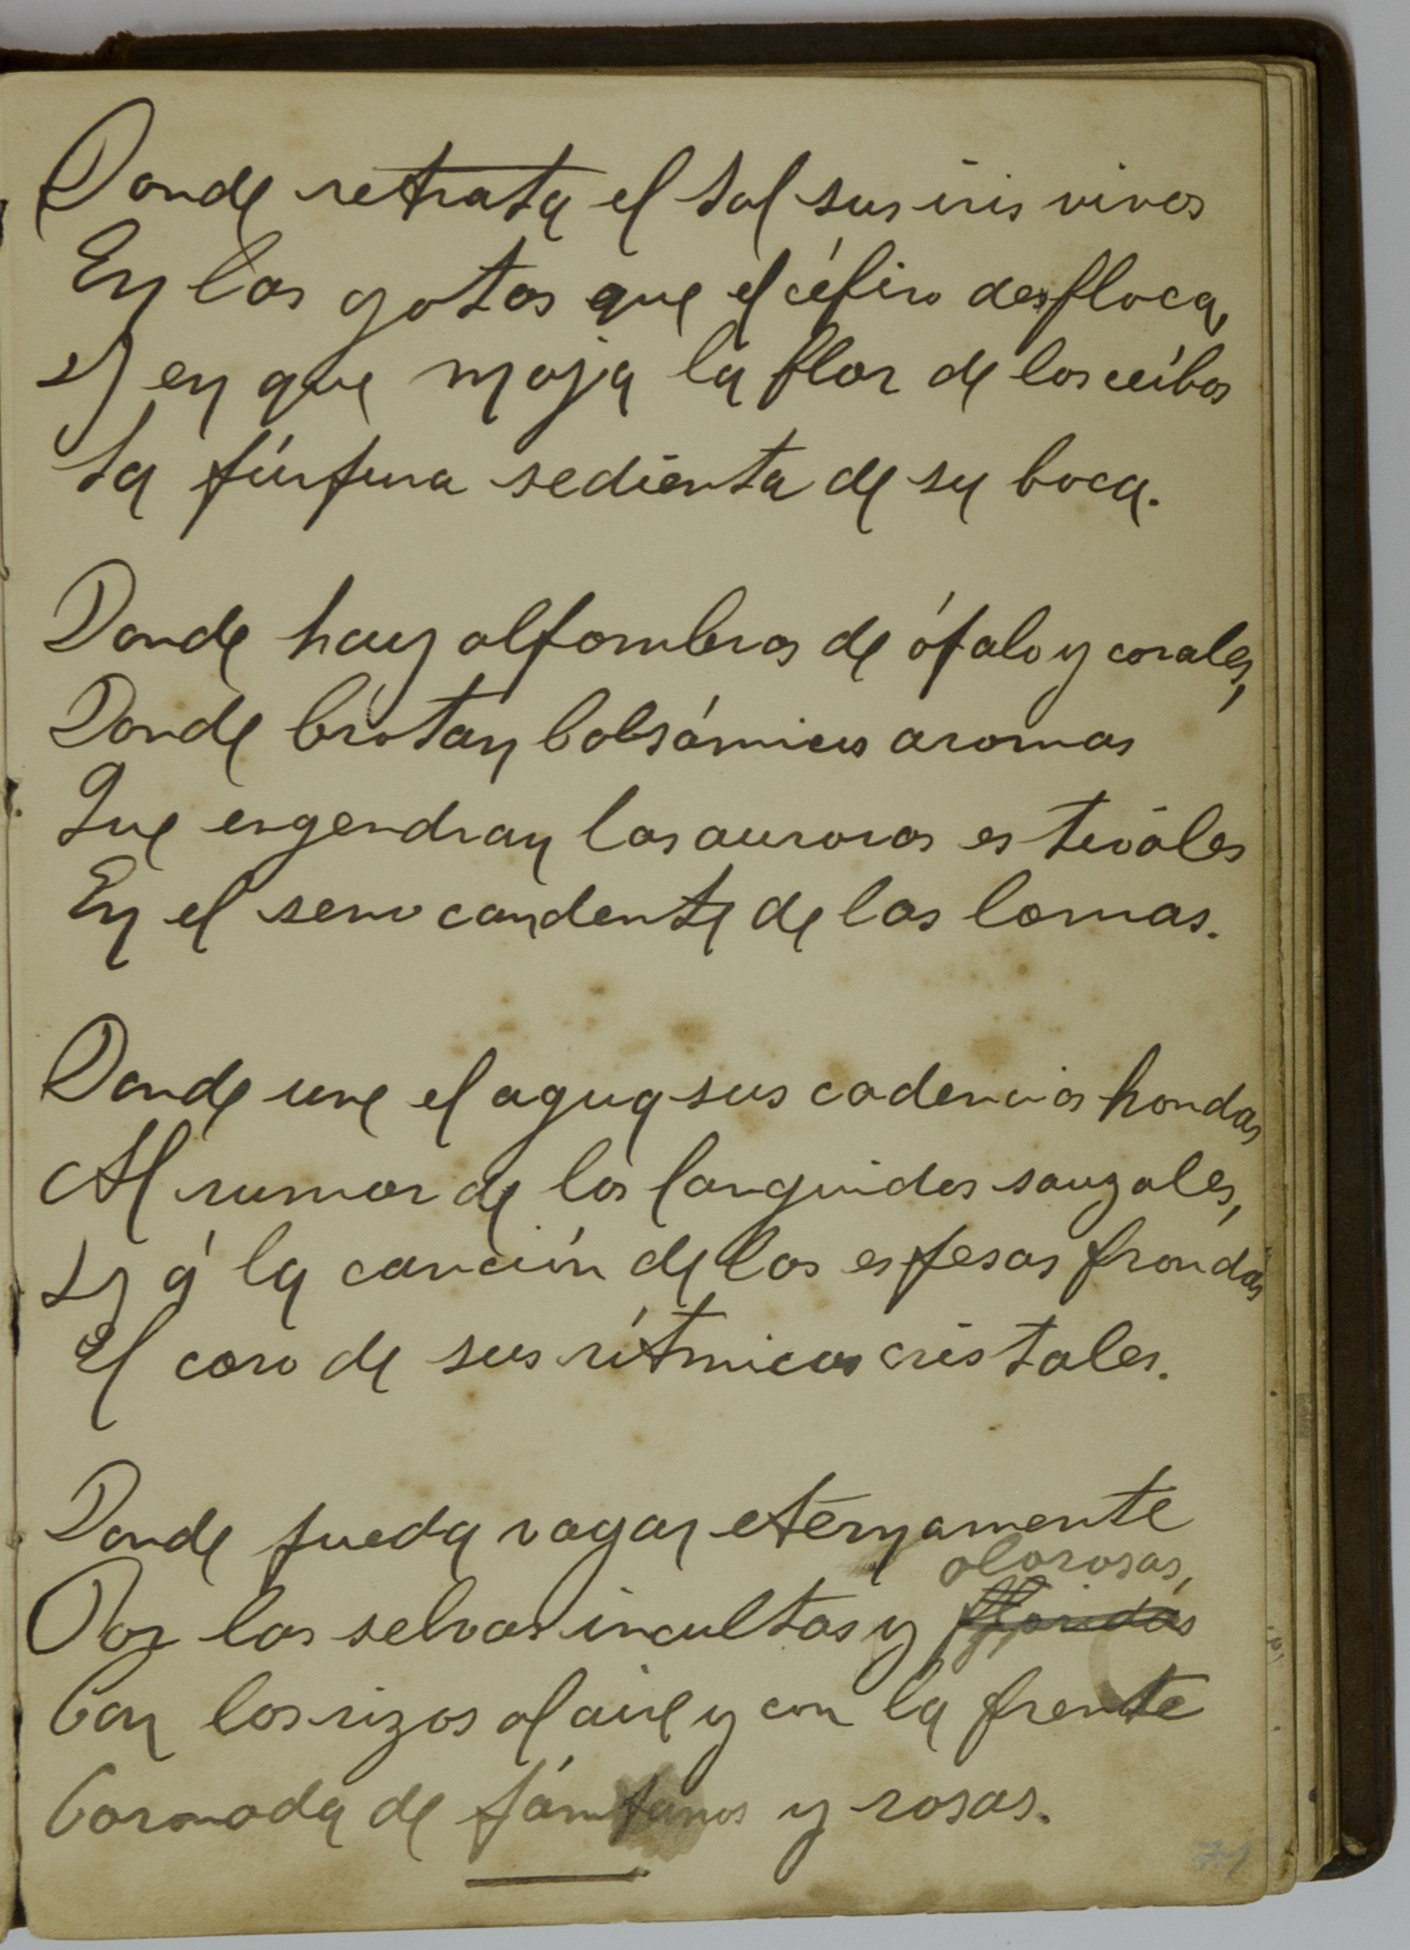 Donde retrata el sol sus iris vivos
En las gotas que el céfiro desfloca,
Y en que moja la flor de los ceibos
La púrpura sedienta de su boca.
Donde hay alfombras de ópalo y corales,
Donde brotan balsámicos aromas
Que engendran las auroras estivales
En el seno candente de las lomas.
Donde une el agua sus cadencias hondas
Al rumor de los languidos sauzales,
Y á la canción de las espesas frondas
El coro de sus rítmicos cristales.
Donde pueda vagar eternamente
olorosas,
Por las selvas incultas y floridas
Con los rizos al aire y con la frente
Coronada de pámpanos y rosas.
71